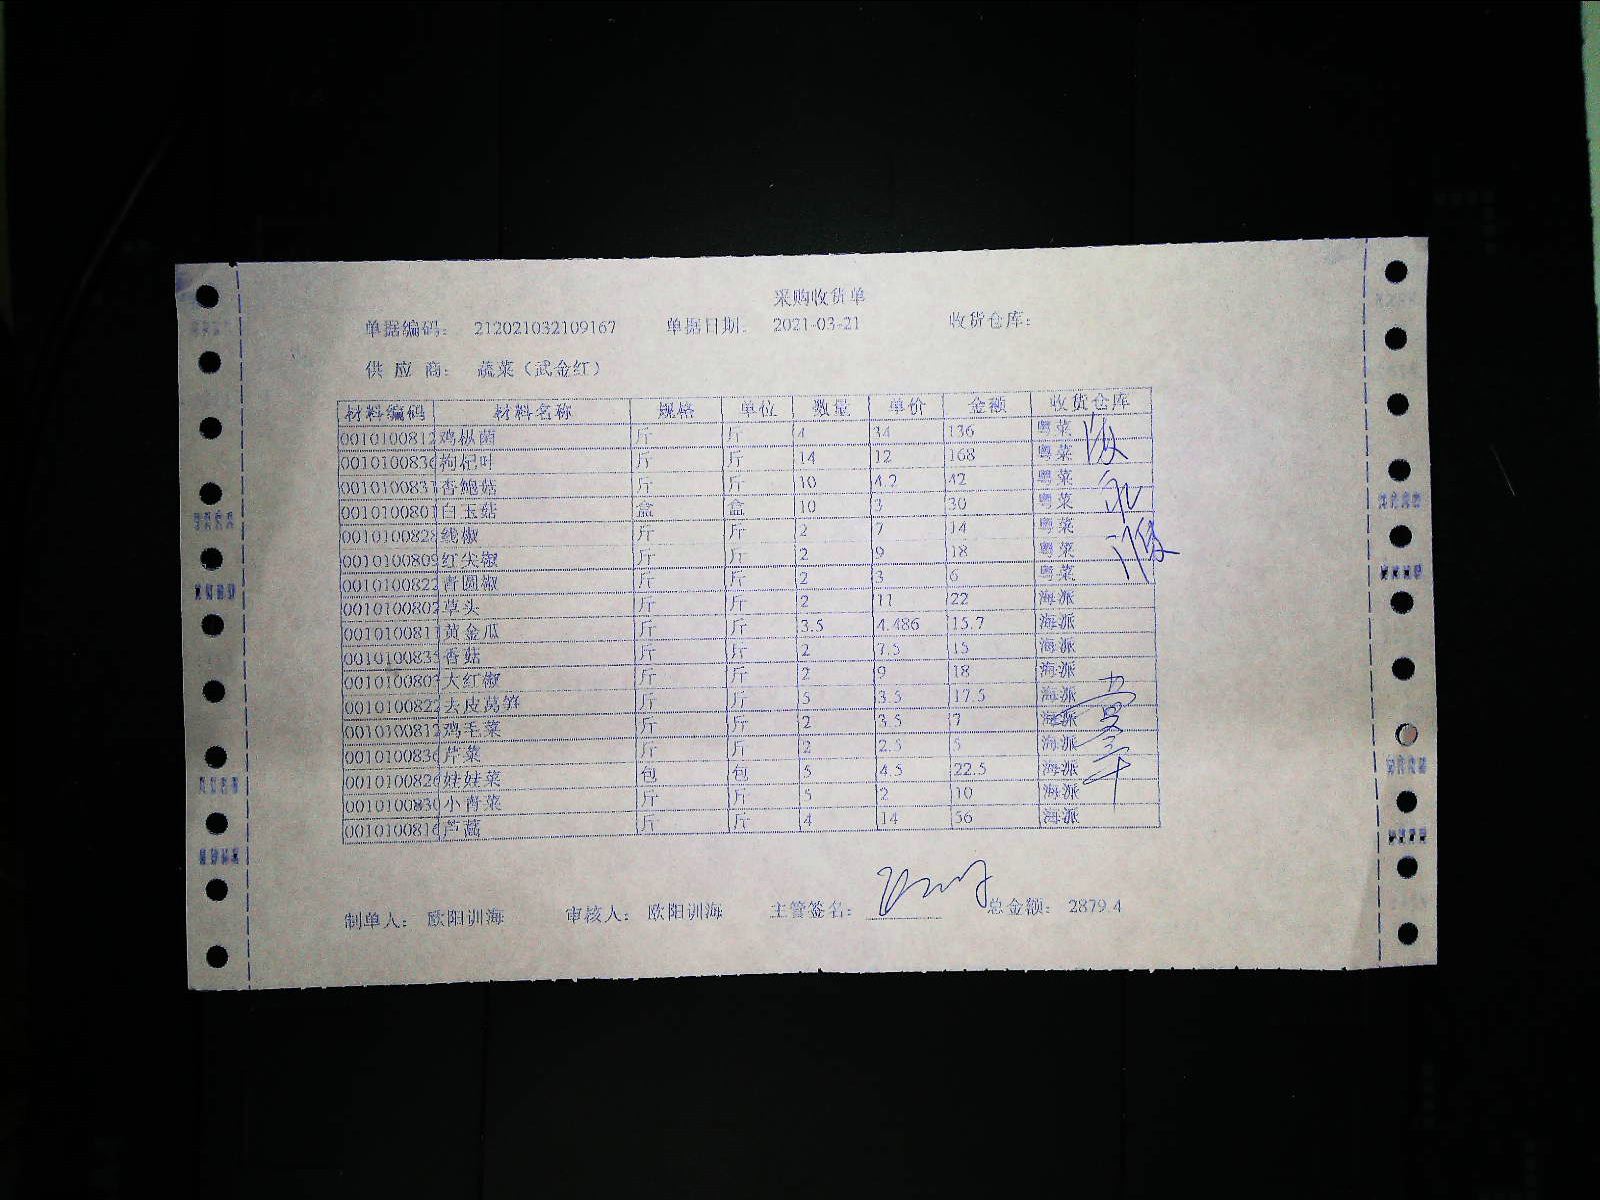 采购收货单
单据编码: 212021032109167 单据日期: 2021-03-21 收货仓库:
供 应 商: 蔬菜（武金红）
材料编码 材料名称 规格 单位 数量 单价 金额 收货仓库
0010100812 鸡枞菌 斤 斤 4 34 136 粤菜
001010083 枸杞叶 斤 斤 14 12 168 粤菜
001010083 杏鲍菇 斤 斤 10 4.2 42 粤菜
001010080 白玉菇 盒 盒 10 3 30 粤菜
001010082 线椒 斤 斤 2 7 14 粤菜
001010080 红尖椒 斤 斤 2 9 18 粤菜
0010100822 青圆椒 斤 斤 2 3 6 粤菜
001010080 草头 斤 斤 2 11 22 海派
001010081 黄金瓜 斤 斤 3.5 4.486 15.7 海派
001010083 香菇 斤 斤 2 7.5 15 海派
001010080 大红椒 斤 斤 2 9 18 海派
0010100822 去皮莴笋 斤 斤 5 3.5 17.5 海派
001010081 鸡毛菜 斤 斤 2 3.5 7 海派
001010083 芹菜 斤 斤 2 2.5 5 海派
001010082 娃娃菜 包 包 5 4.5 22.5 海派
001010083 小青菜 斤 斤 5 2 10 海派
001010081 芦蒿 斤 斤 4 14 56 海派
制单人: 欧阳训海 审核人: 欧阳训海 主管签名: 总金额: 2879.4